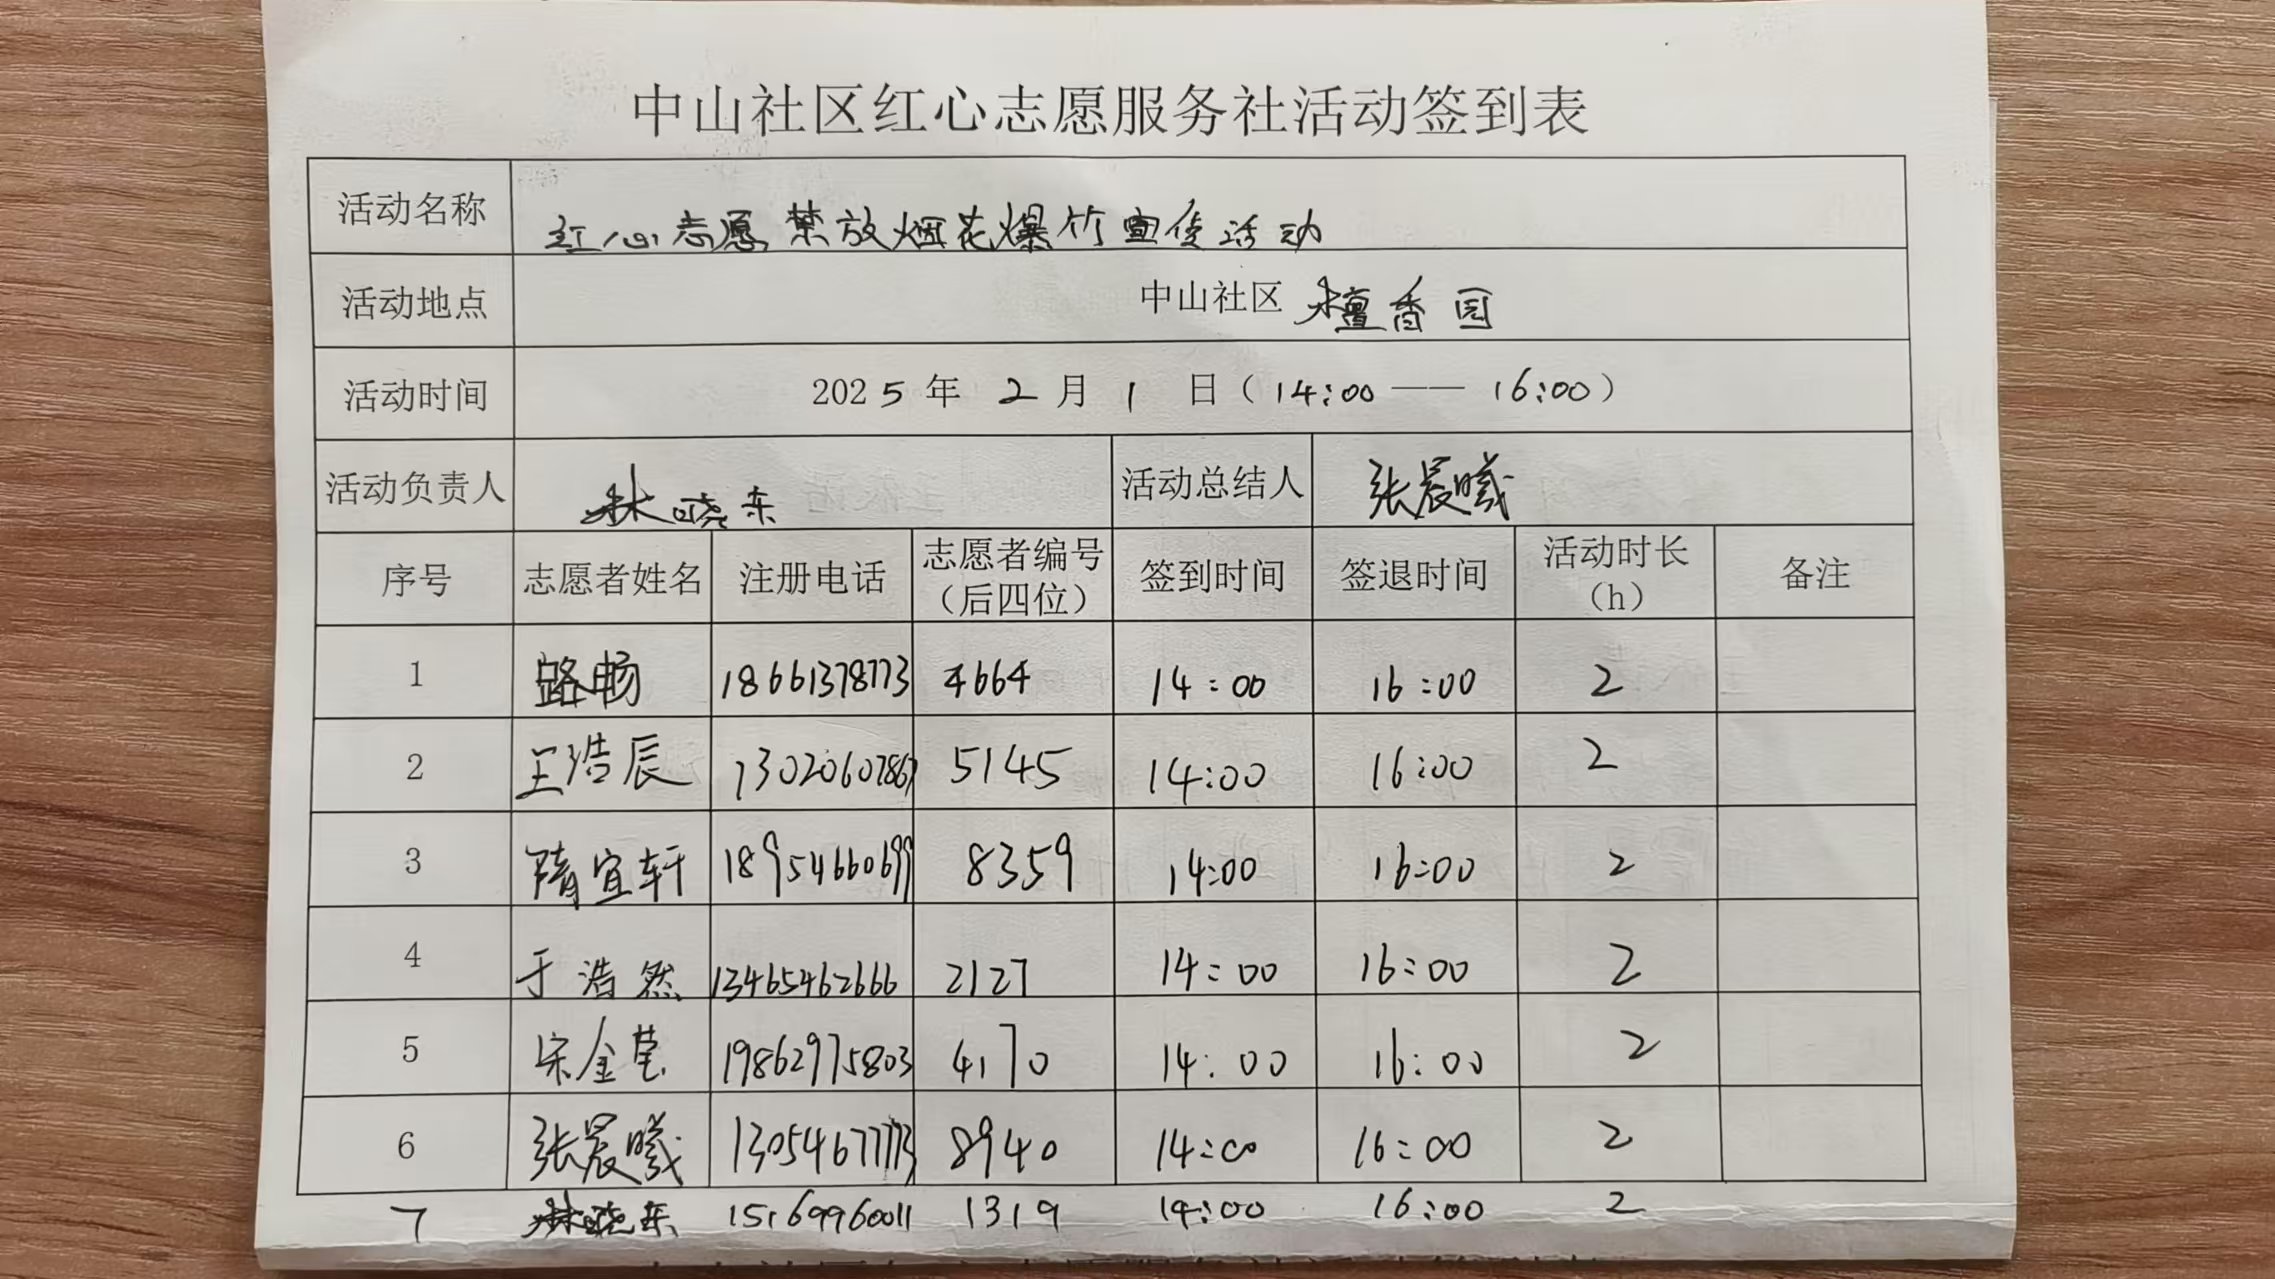 中山社区红心志愿服务社活动签到表
活动名称 红心志愿禁放烟花爆竹宣传活动
活动地点 中山社区 檀香园
活动时间 2025年 2月 1 日（14:00 —— 16:00）
活动负责人 林晓东 活动总结人 张晨曦
序号 志愿者姓名 注册电话 志愿者编号（后四位） 签到时间 签退时间 活动时长（h） 备注
1 路畅 18661378773 4664 14:00 16:00 2
2 王浩辰 13020607867 5145 14:00 16:00 2
3 隋宜轩 18954660699 8359 14:00 16:00 2
4 于浩然 13465462666 2127 14:00 16:00 2
5 宋金莹 19862975803 4170 14:00 16:00 2
6 张晨曦 13054677773 8940 14:00 16:00 2
7 林晓东 15169960011 1319 14:00 16:00 2